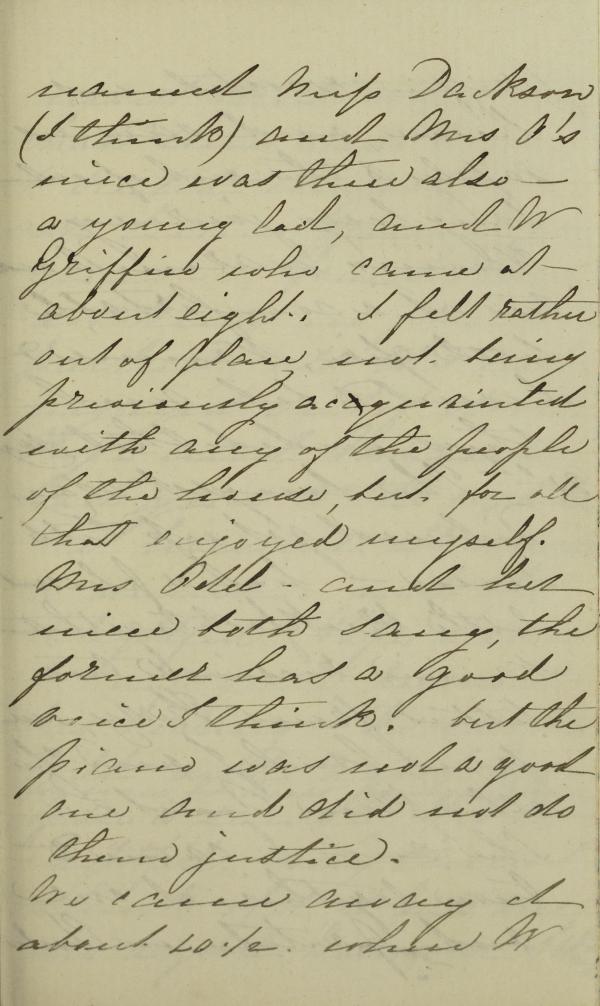 named Miss Dackson
(I think) and Mrs O's
niece was there also —
a young lad, and W
Griffin who came at
about eight. I felt rather
out of place not being
previously acquainted
with any of the people
of the house, but for all
that enjoyed myself.
Mrs Odel - and her
niece both sang, the
former has a good
voice I think. but the
piano was not a good
one and did not do
them justice.
We came away at
about 10.½. when W